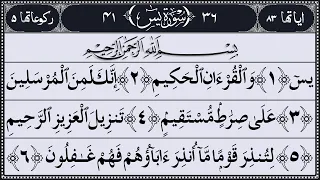 اياتها ٨٣ ٣٦ سورة يس ٤١ ركوعاتها ٥
بِسْمِ اللَّهِ الرَّحْمَٰنِ الرَّحِيمِ
يسٓ ﴿١﴾ وَٱلْقُرْءَانِ ٱلْحَكِيمِ ﴿٢﴾ إِنَّكَ لَمِنَ ٱلْمُرْسَلِينَ
﴿٣﴾ عَلَىٰ صِرَٰطٍ مُّسْتَقِيمٍ ﴿٤﴾ تَنزِيلَ ٱلْعَزِيزِ ٱلرَّحِيمِ
﴿٥﴾ لِتُنذِرَ قَوْمًا مَّآ أُنذِرَ ءَابَآؤُهُمْ فَهُمْ غَٰفِلُونَ ﴿٦﴾